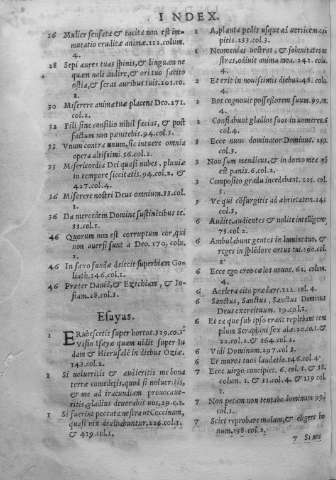 INDEX.
26 Mulier sensata & tacita non est im-
mutatio eruditæ animæ. 112. colum.
4.
28 Sepi aures tuas spinis, & linguam ne
quam noli audire, & ori tuo facito
ostia, & seras auribus tuis. 201. co.
2.
30 Miserere animæ tuæ placens Deo. 271.
col. 2.
32 Fili sine consilio nihil facias, & post
factum non pœnitebis. 94. col. 3.
33 Vnum contra unum, sic intuere omnia
opera altissimi. 56. col. 2.
35 Misericordia Dei quasi nubes, pluuiæ
in tempore siccitatis. 94. col. 2, &
427. col. 4.
36 Miserere nostri Deus omnium. 33. col.
3.
36 Da mercedem Domine sustinentibus te.
33. col. 2.
46 Quorum non est corruptum cor, qui
non auersi sunt à Deo. 170, colu.
2.
46 In saxo fundæ deiecit superbiam Go-
liath. 146. col. 1.
46 Præter Dauid, & Ezechiam, & Io-
siam. 28. col. 3.
Esayas.
1 ERubescetis super hortos. 329. co. 1.
1 Visio Esayæ quam uidit super Iu
dam & Hierusalẽ in diebus Oziæ.
142. col. 2.
1 Si uolueritis & audieritis me bona
terræ comedetis, quod si nolueritis,
& me ad iracundiam prouocaue-
ritis, gladius deuorabit uos. 29. c. 2.
1 Si fuerint peccata uestra ut Coccinum,
quasi nix dealbabuntur. 226. col. 3,
& 429. col. 1.
1 A planta pedis usque ad uerticem ca-
pitis. 233. col. 3.
1 Neomenias uestras, & solenitates ue
stras, odiuit anima mea. 241. colu.
4.
2 Et erit in nouissimis diebus. 48. col.
4.
1 Bos cognouit possessorem suum. 99.
4.
2 Conflabunt gladios suos in uomeres.
col. 4.
3 Ecce nunc dominator Dominus. 219.
col. 2.
3 Non sum medicus, & in domo mea nõ
est panis. 6. col. 2.
3 Composito gradu incedebant. 201. col.
3.
5 Ve qui consurgitis ad ebrietatem. 142
col. 3.
6 Audite audientes & nolite intelligere,
73. col. 2.
6 Ambulabunt gentes in lumine tuo, &
reges in splendore ortus tui. 190. co.
2.
6 Ecce ego creo cælos nouos. 62. colum.
4.
6 Sanctus, Sanctus, Sanctus Dominus
Deus exercituum. 19. col. 1.
6 Vidi Dominum. 197. col. 2.
6 Et muros tuos laudatio. 146. col. 4.
7 Ecce uirgo concipiet. 6. col. 1. & 18.
colum. 1. & 31. col. 4. & 119
col. 1.
7 Non petam non tentabo dominum. 99.
col. 1.
7 Sciet reprobare malum, & eligere bo-
num. 138. col. 2.
7 Si no